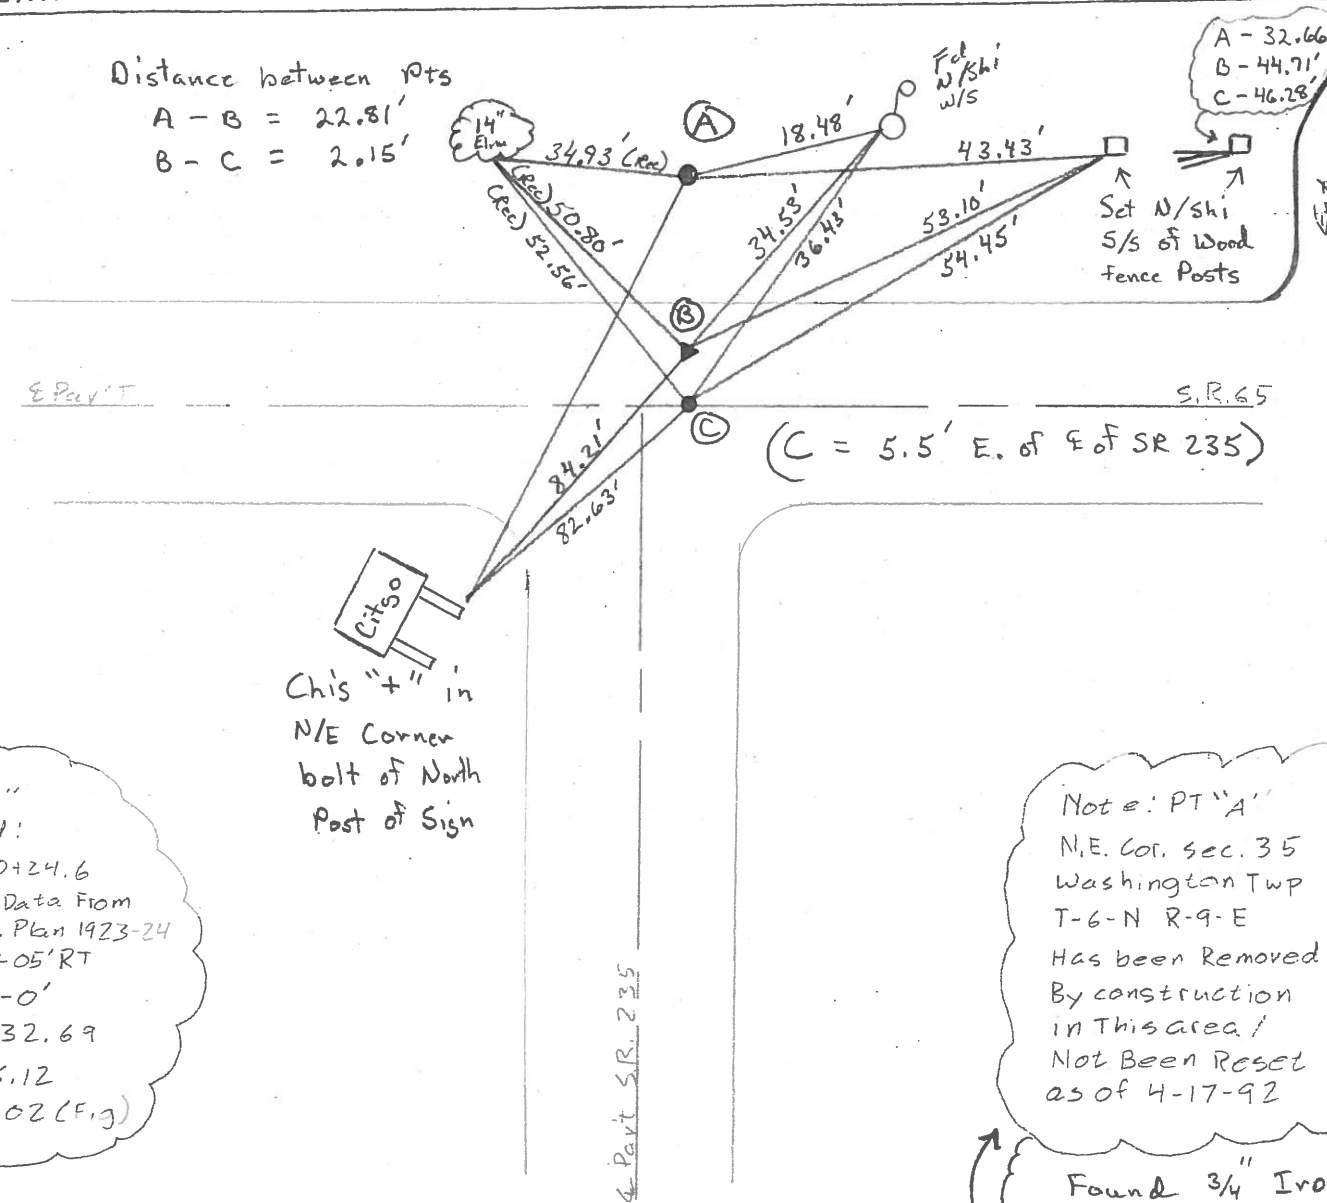 Distance between Pts
A - B = 22.81'
B - C = 2.15'
14"
Elm
34.93' (Rec)
(Rec) 50.80'
(Rec) 52.56'
A
18.48'
Fd
N/Shi
w/S
43.43'
34.53'
36.43'
53.10'
54.45'
A - 32.66
B - 44.71'
C - 46.28'
Set N/Shi
S/S of Wood
fence Posts
B
℄ Pav'T
S.R. 65
C
(C = 5.5' E. of ℄ of SR 235)
84.21'
82.63'
Citgo
Chis "+" in
N/E Corner
bolt of North
Post of Sign
0+24.6
Data From
. Plan 1923-24
-05' RT
-0'
32.69
.12
02 (Fig)
℄ Pav't S.R. 235
Note: PT "A"
N.E. Cor. Sec. 35
Washington Twp
T-6-N R-9-E
Has been Removed
By construction
in This area /
Not Been Reset
as of 4-17-92
Found 3/4" Iro